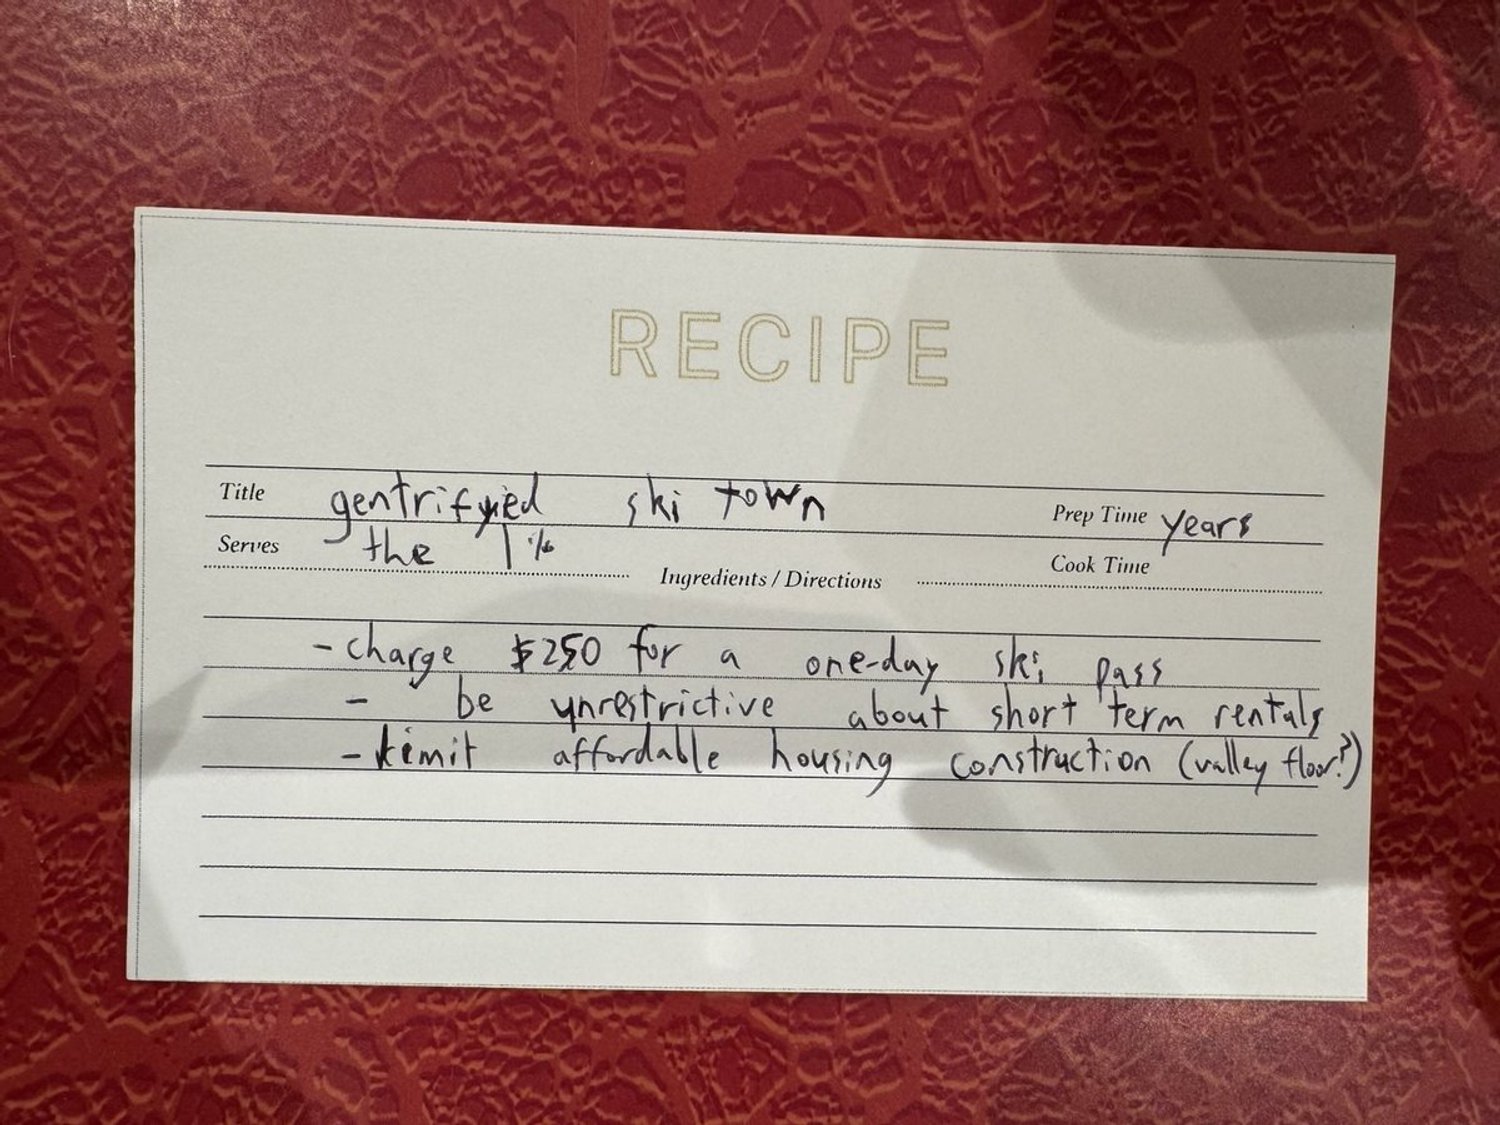 RECIPE
Title gentrifyied ski town Prep Time years
Serves the 1% Cook Time
Ingredients / Directions
- charge $250 for a one-day ski pass
- be unrestrictive about short term rentals
- limit affordable housing construction (valley floor?)